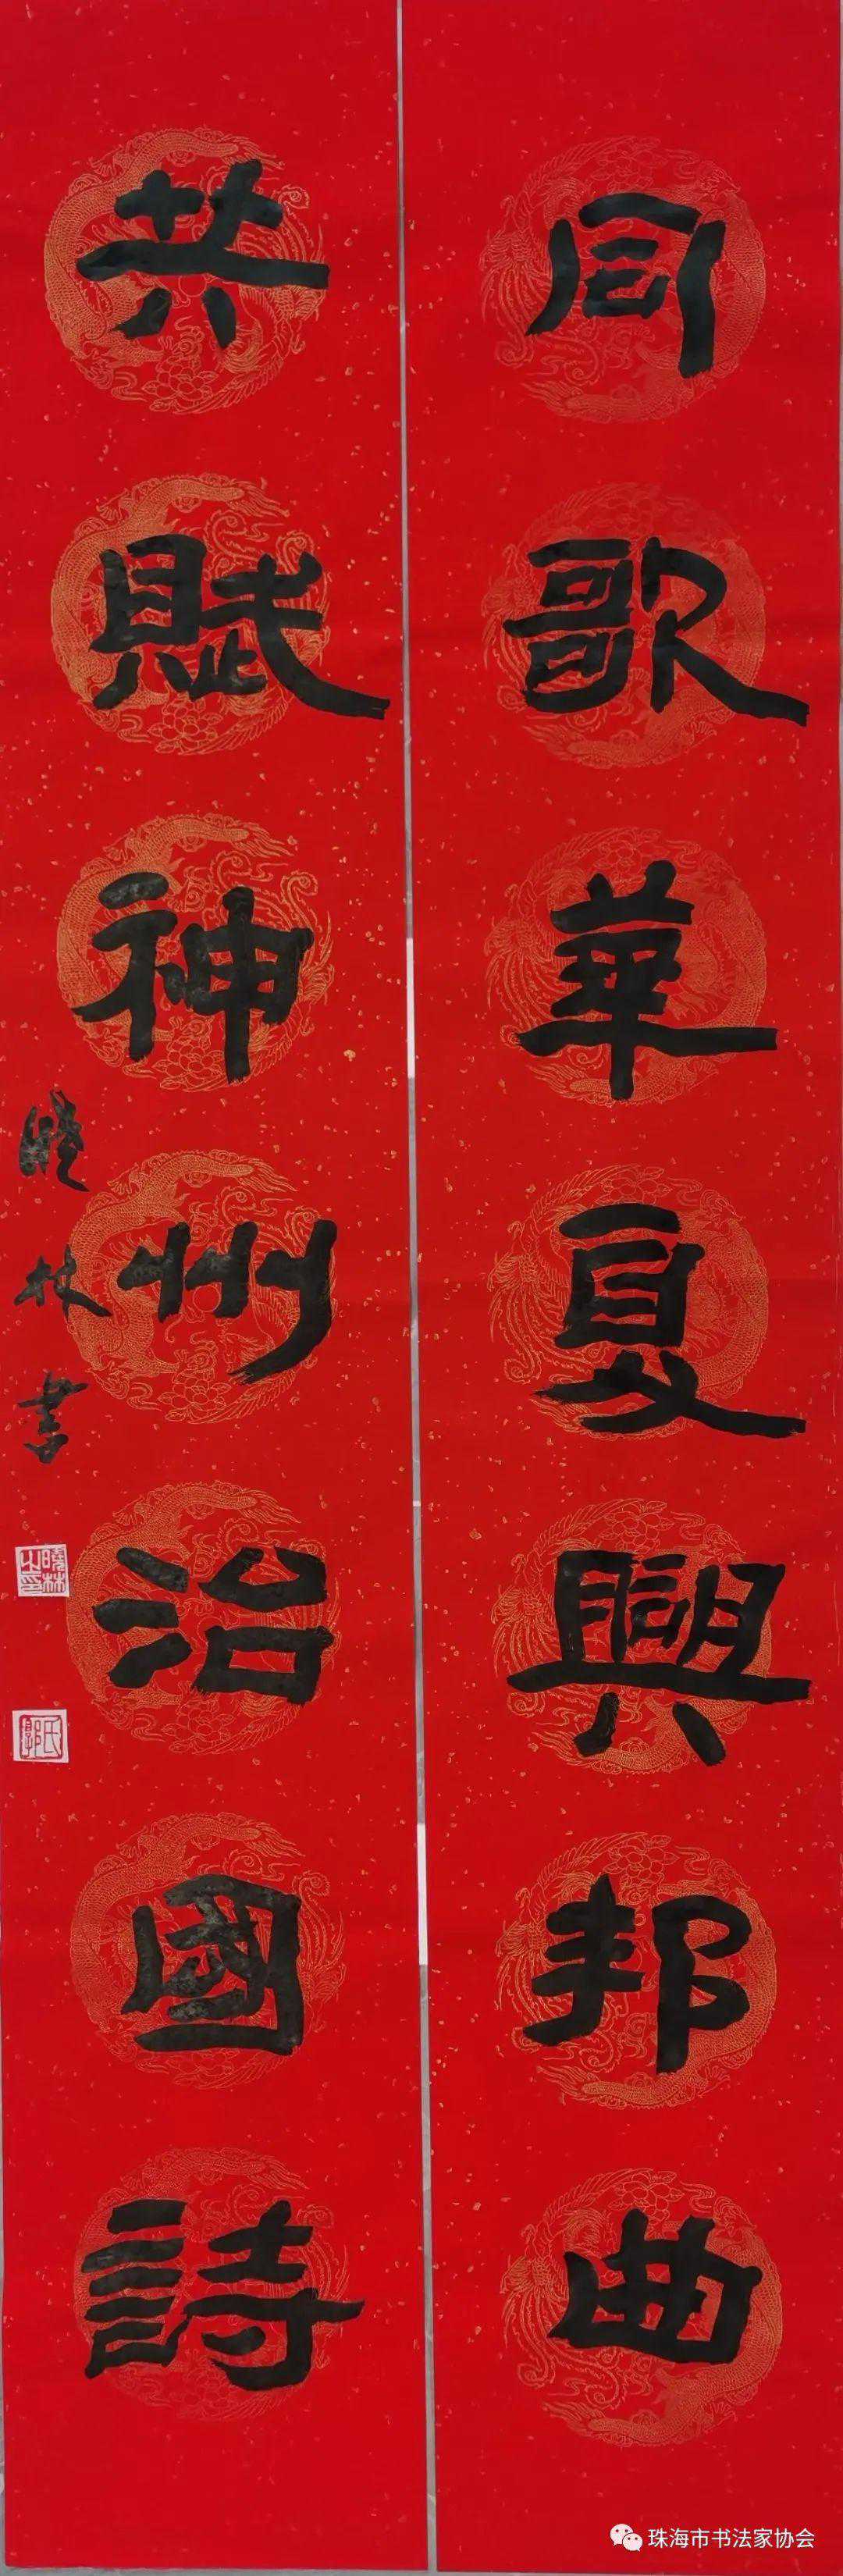 同歌華夏興邦曲
共賦神州治國詩
曉林書
曉林之印
郭氏
珠海市书法家协会